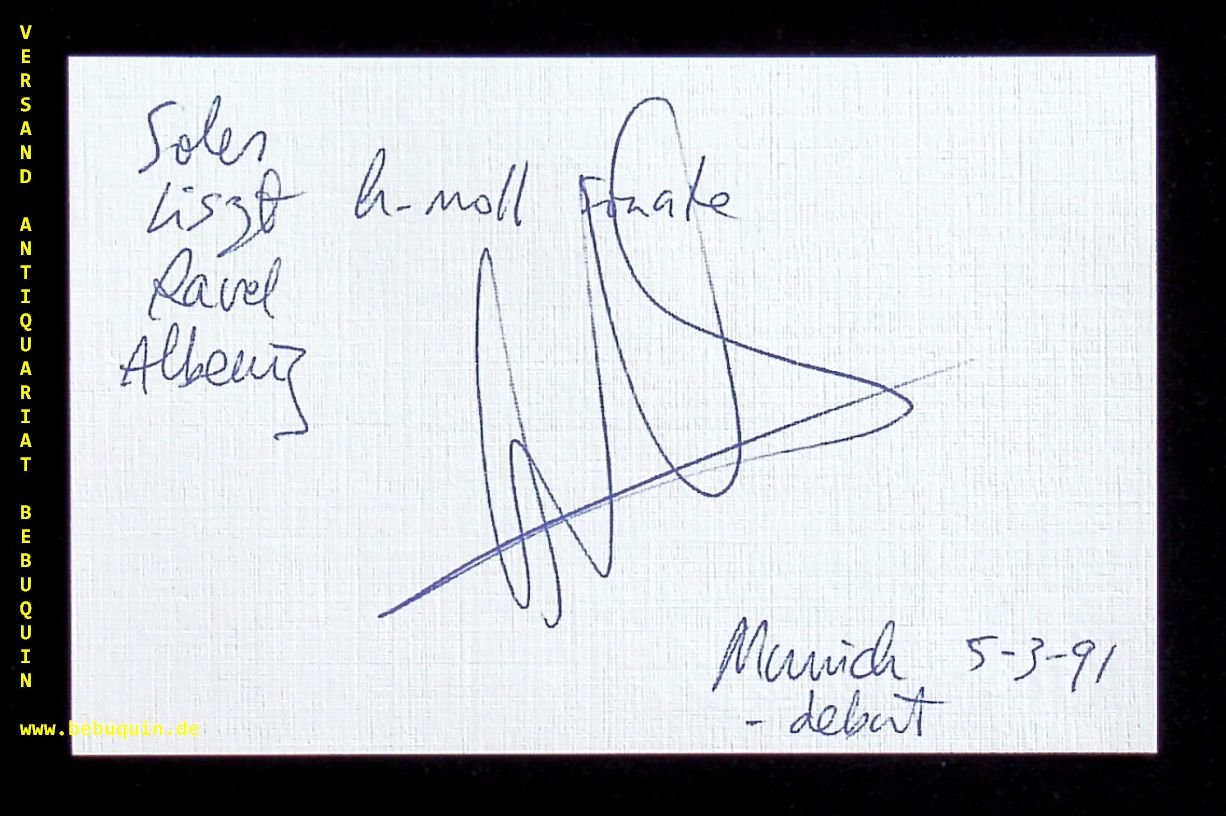 VERSAND ANTIQUARIAT BEBUQUIN
www.bebuquin.de
Soler
Liszt h-moll Sonate
Ravel
Albeniz
Munich 5-3-91
- debut